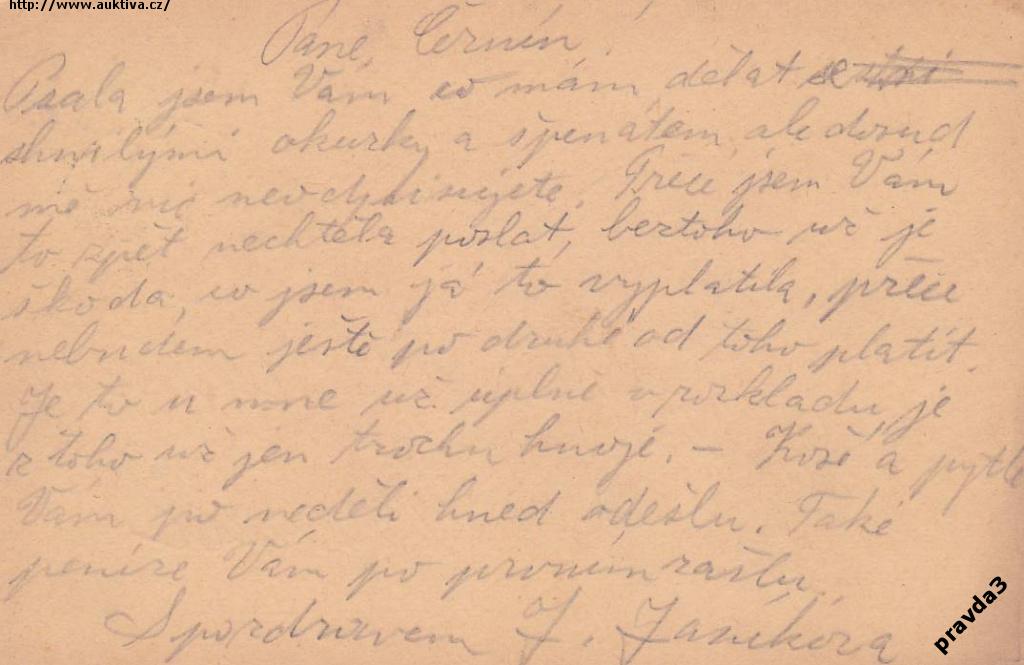 http://www.auktiva.cz/
Pane Černín!
Psala jsem Vám co mám dělat se
shnilými okurky a špenátem, ale dosud
mě nic neodpisujete. Přece jsem Vám
to zpět nechtěla poslat, beztoho už je
škoda, co jsem já to vyplatila, přece
nebudem ještě po druhé od toho platit.
Je to u mne už úplně v rozkladu, je
z toho už jen trochu hnoje. – Koše a pytle
Vám po neděli hned odešlu. Také
peníze Vám po prvním zašlu.
S pozdravem J. Janíková
pravda3